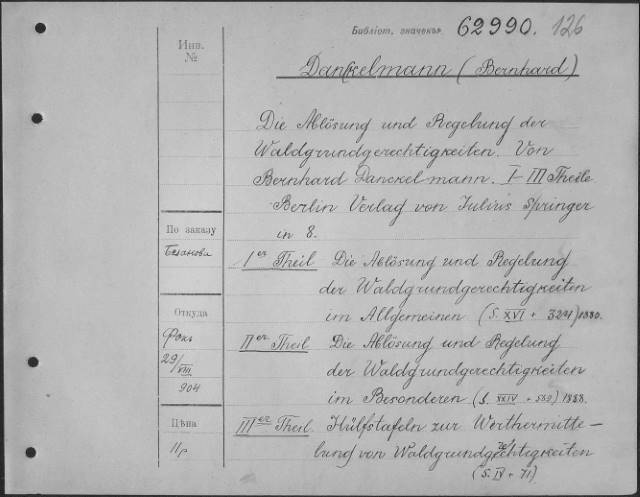 Библіот. значекъ. 62990. 126
Инв.
№
Danckelmann (Bernhard)
Die Ablösung und Regelung der
Waldgrundgerechtigkeiten. Von
Bernhard Danckelmann. I-III Theile
Berlin Verlag von Julius Springer
in 8.
По заказу
I er Theil Die Ablösung und Regelung
der Waldgrundgerechtigkeiten
im Allgemeinen (S. XVI + 1880.
Откуда
Фокъ
29/VIII
904
II er Theil Die Ablösung und Regelung
der Waldgrundgerechtigkeiten
im Besonderen (S. XXIV + 1888.
Цѣна
11р
III er Theil. Hülfstafeln zur Werthermitte-
lung von Waldgrundgerechtigkeiten
(S. IV + 71)